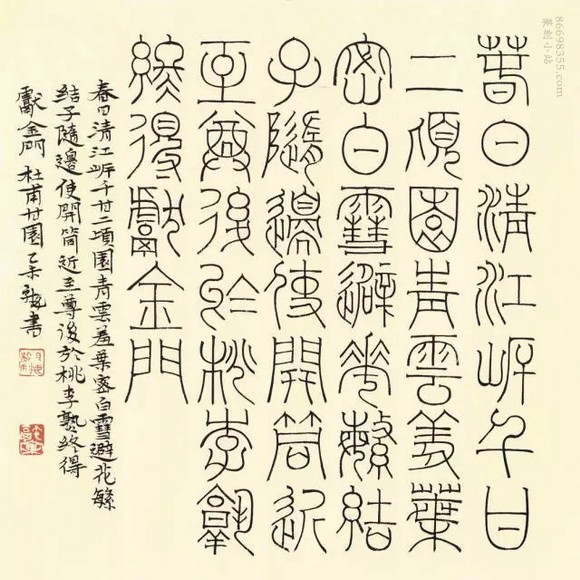 春日清江岸千甘
二頃園青雲羞葉
密白雪避花繁結
子隨邊使開筒近
至尊後於桃李熟
終得獻金門
春日清江岸千甘二頃園青雲羞葉密白雪避花繁
結子隨邊使開筒近至尊後於桃李熟終得
獻金門 杜甫甘園 乙未 書
86698355.com
小站